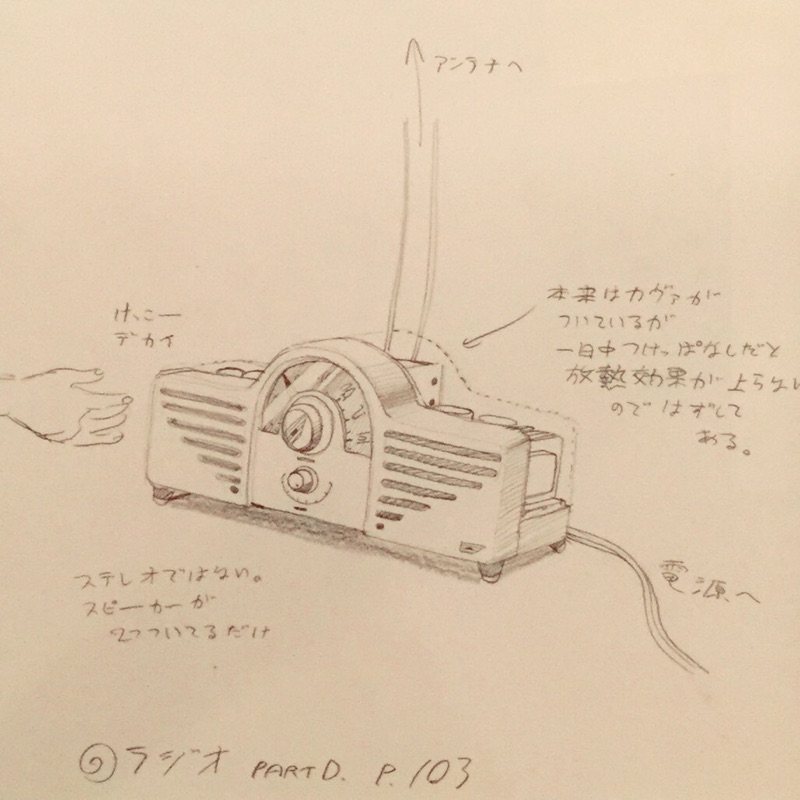 アンテナへ
けっこー
デカイ
本来はカヴァが
ついているが
一日中つけっぱなしだと
放熱効果が上らない
のではずして
ある。
ステレオではない。
スピーカーが
2つついてるだけ
電源へ
ラジオ PART D. P. 103